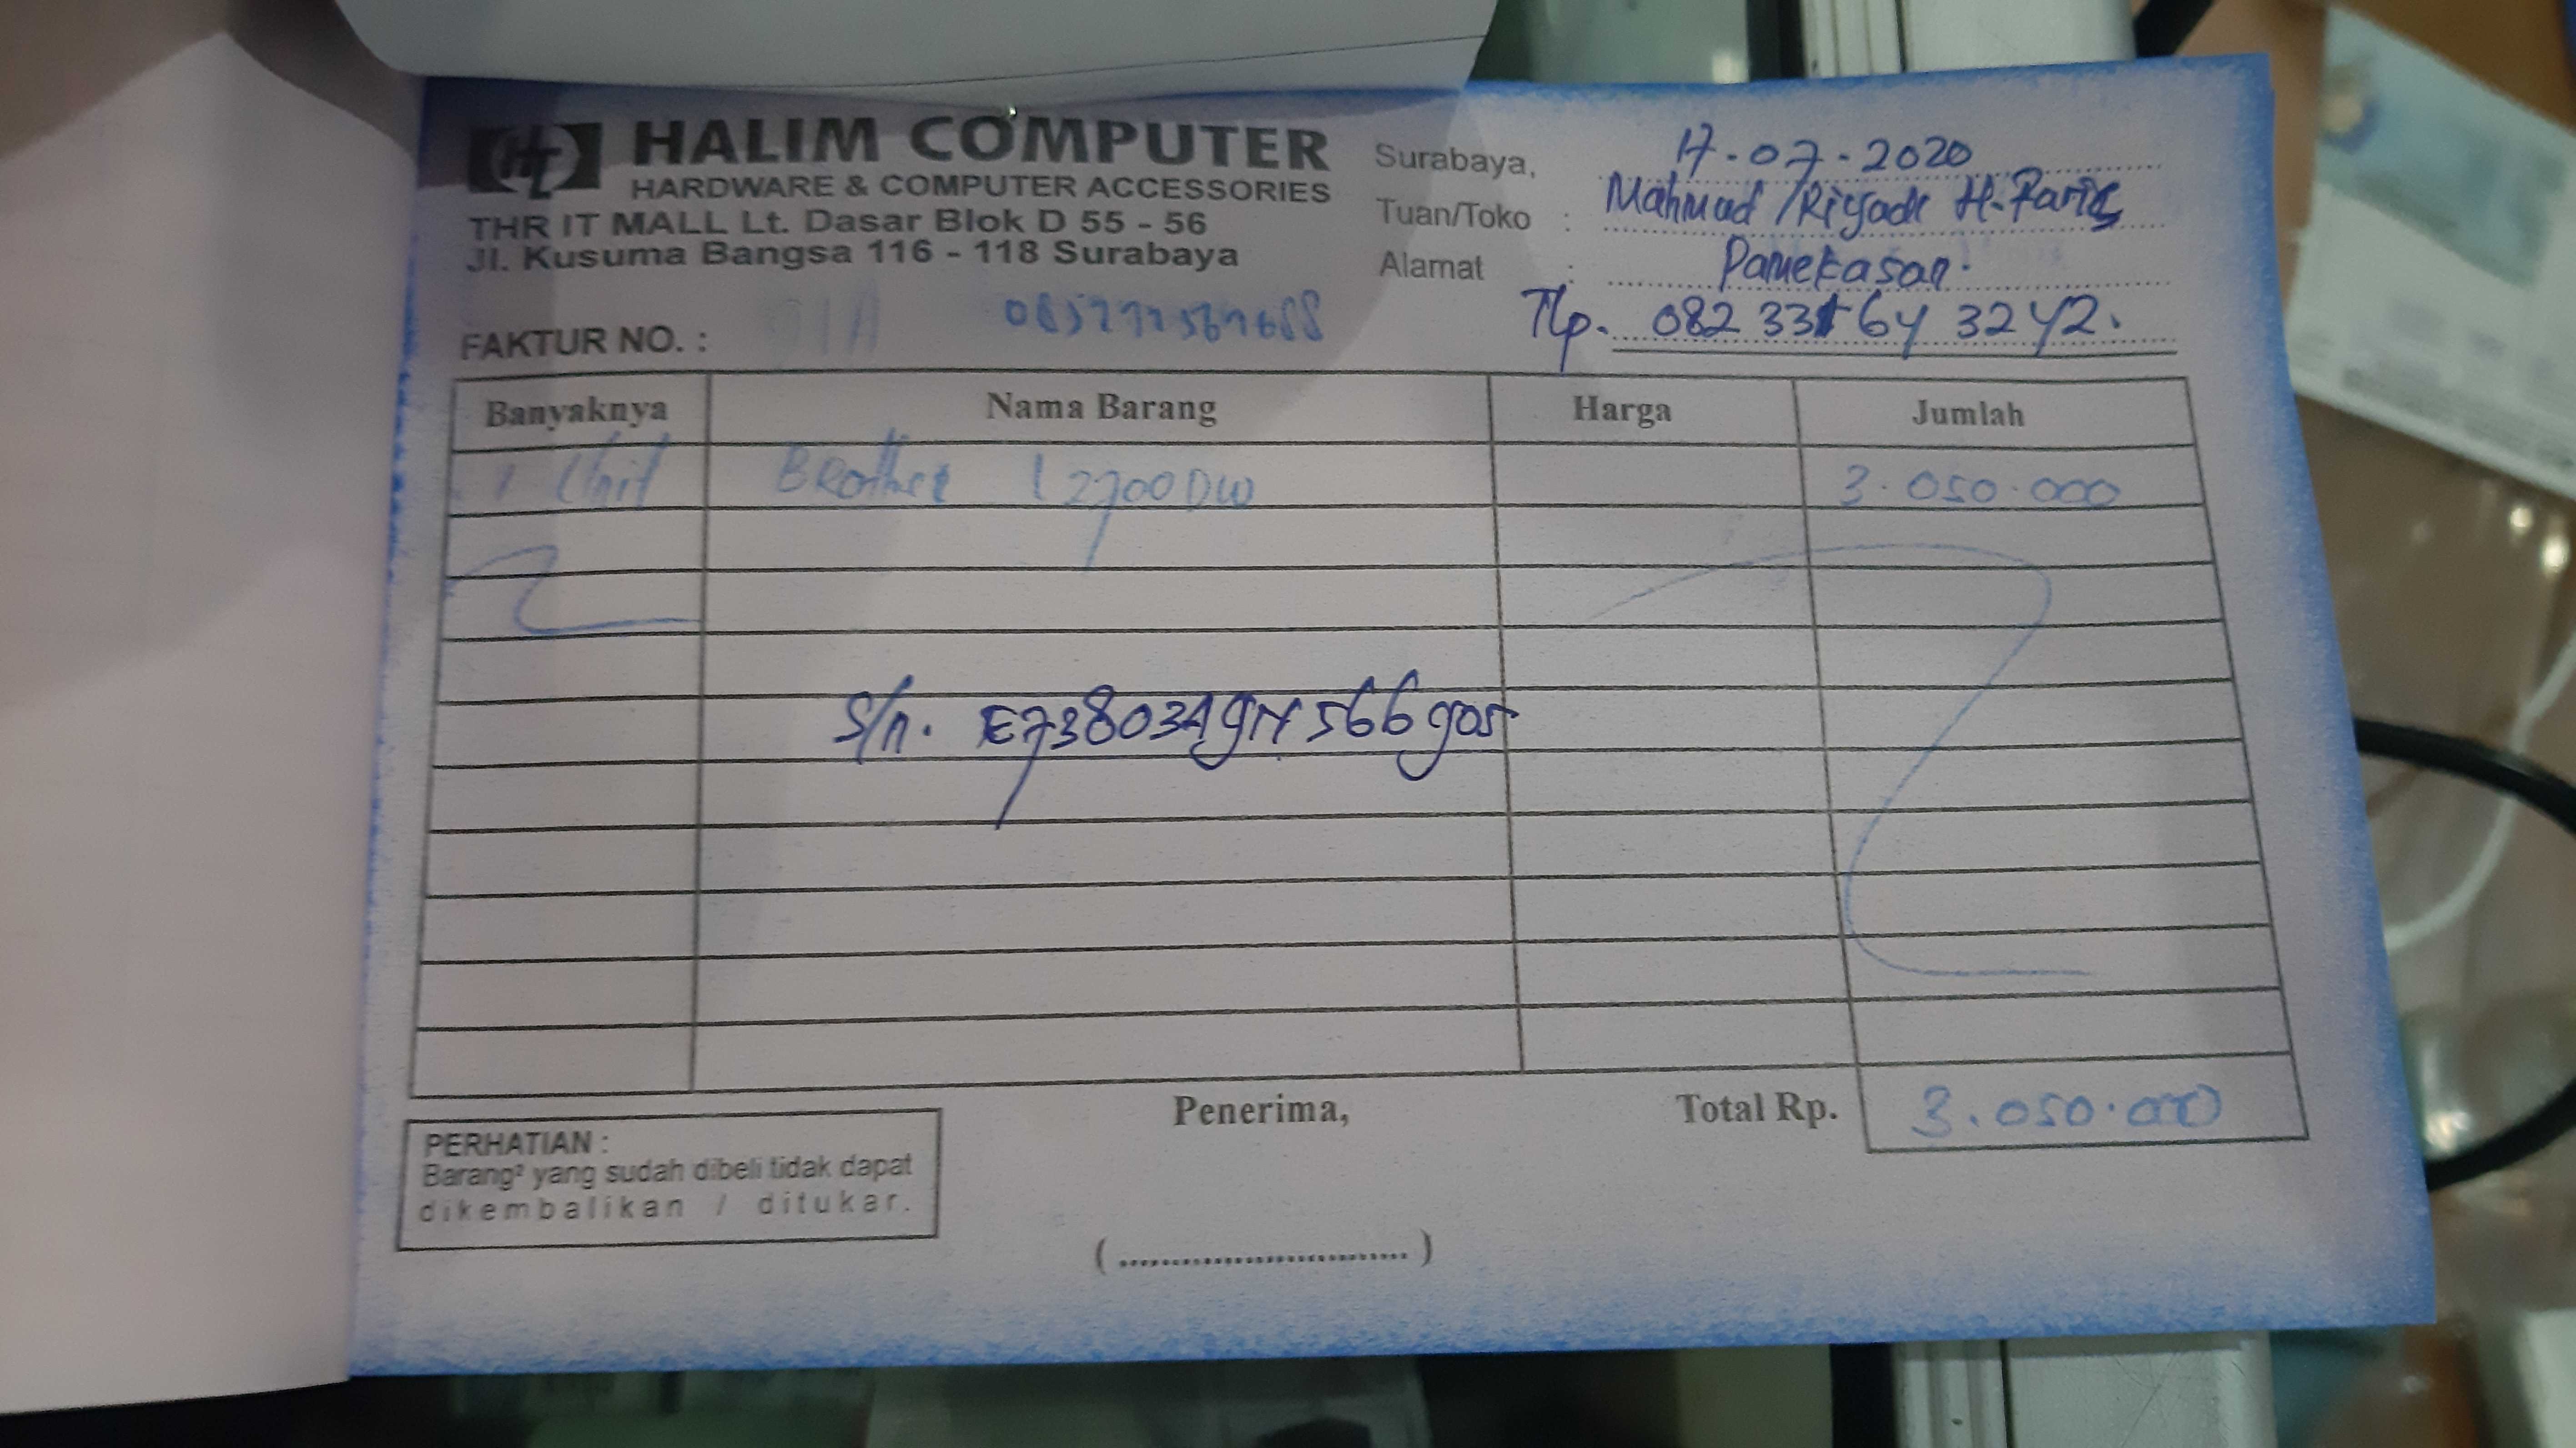 HL HALIM COMPUTER
HARDWARE & COMPUTER ACCESSORIES
THR IT MALL Lt. Dasar Blok D 55 - 56
Jl. Kusuma Bangsa 116 - 118 Surabaya
Surabaya, 17-07-2020
Tuan/Toko : Mahmud /Riyadi H.
Alamat : Pamekasan.
Tlp.
FAKTUR NO. :
Banyaknya Nama Barang Harga Jumlah
1 Unit Brother L2700DW 3.050.000
S/n.
Penerima, Total Rp. 3.050.000
PERHATIAN :
Barang² yang sudah dibeli tidak dapat
dikembalikan / ditukar.
(..............................)